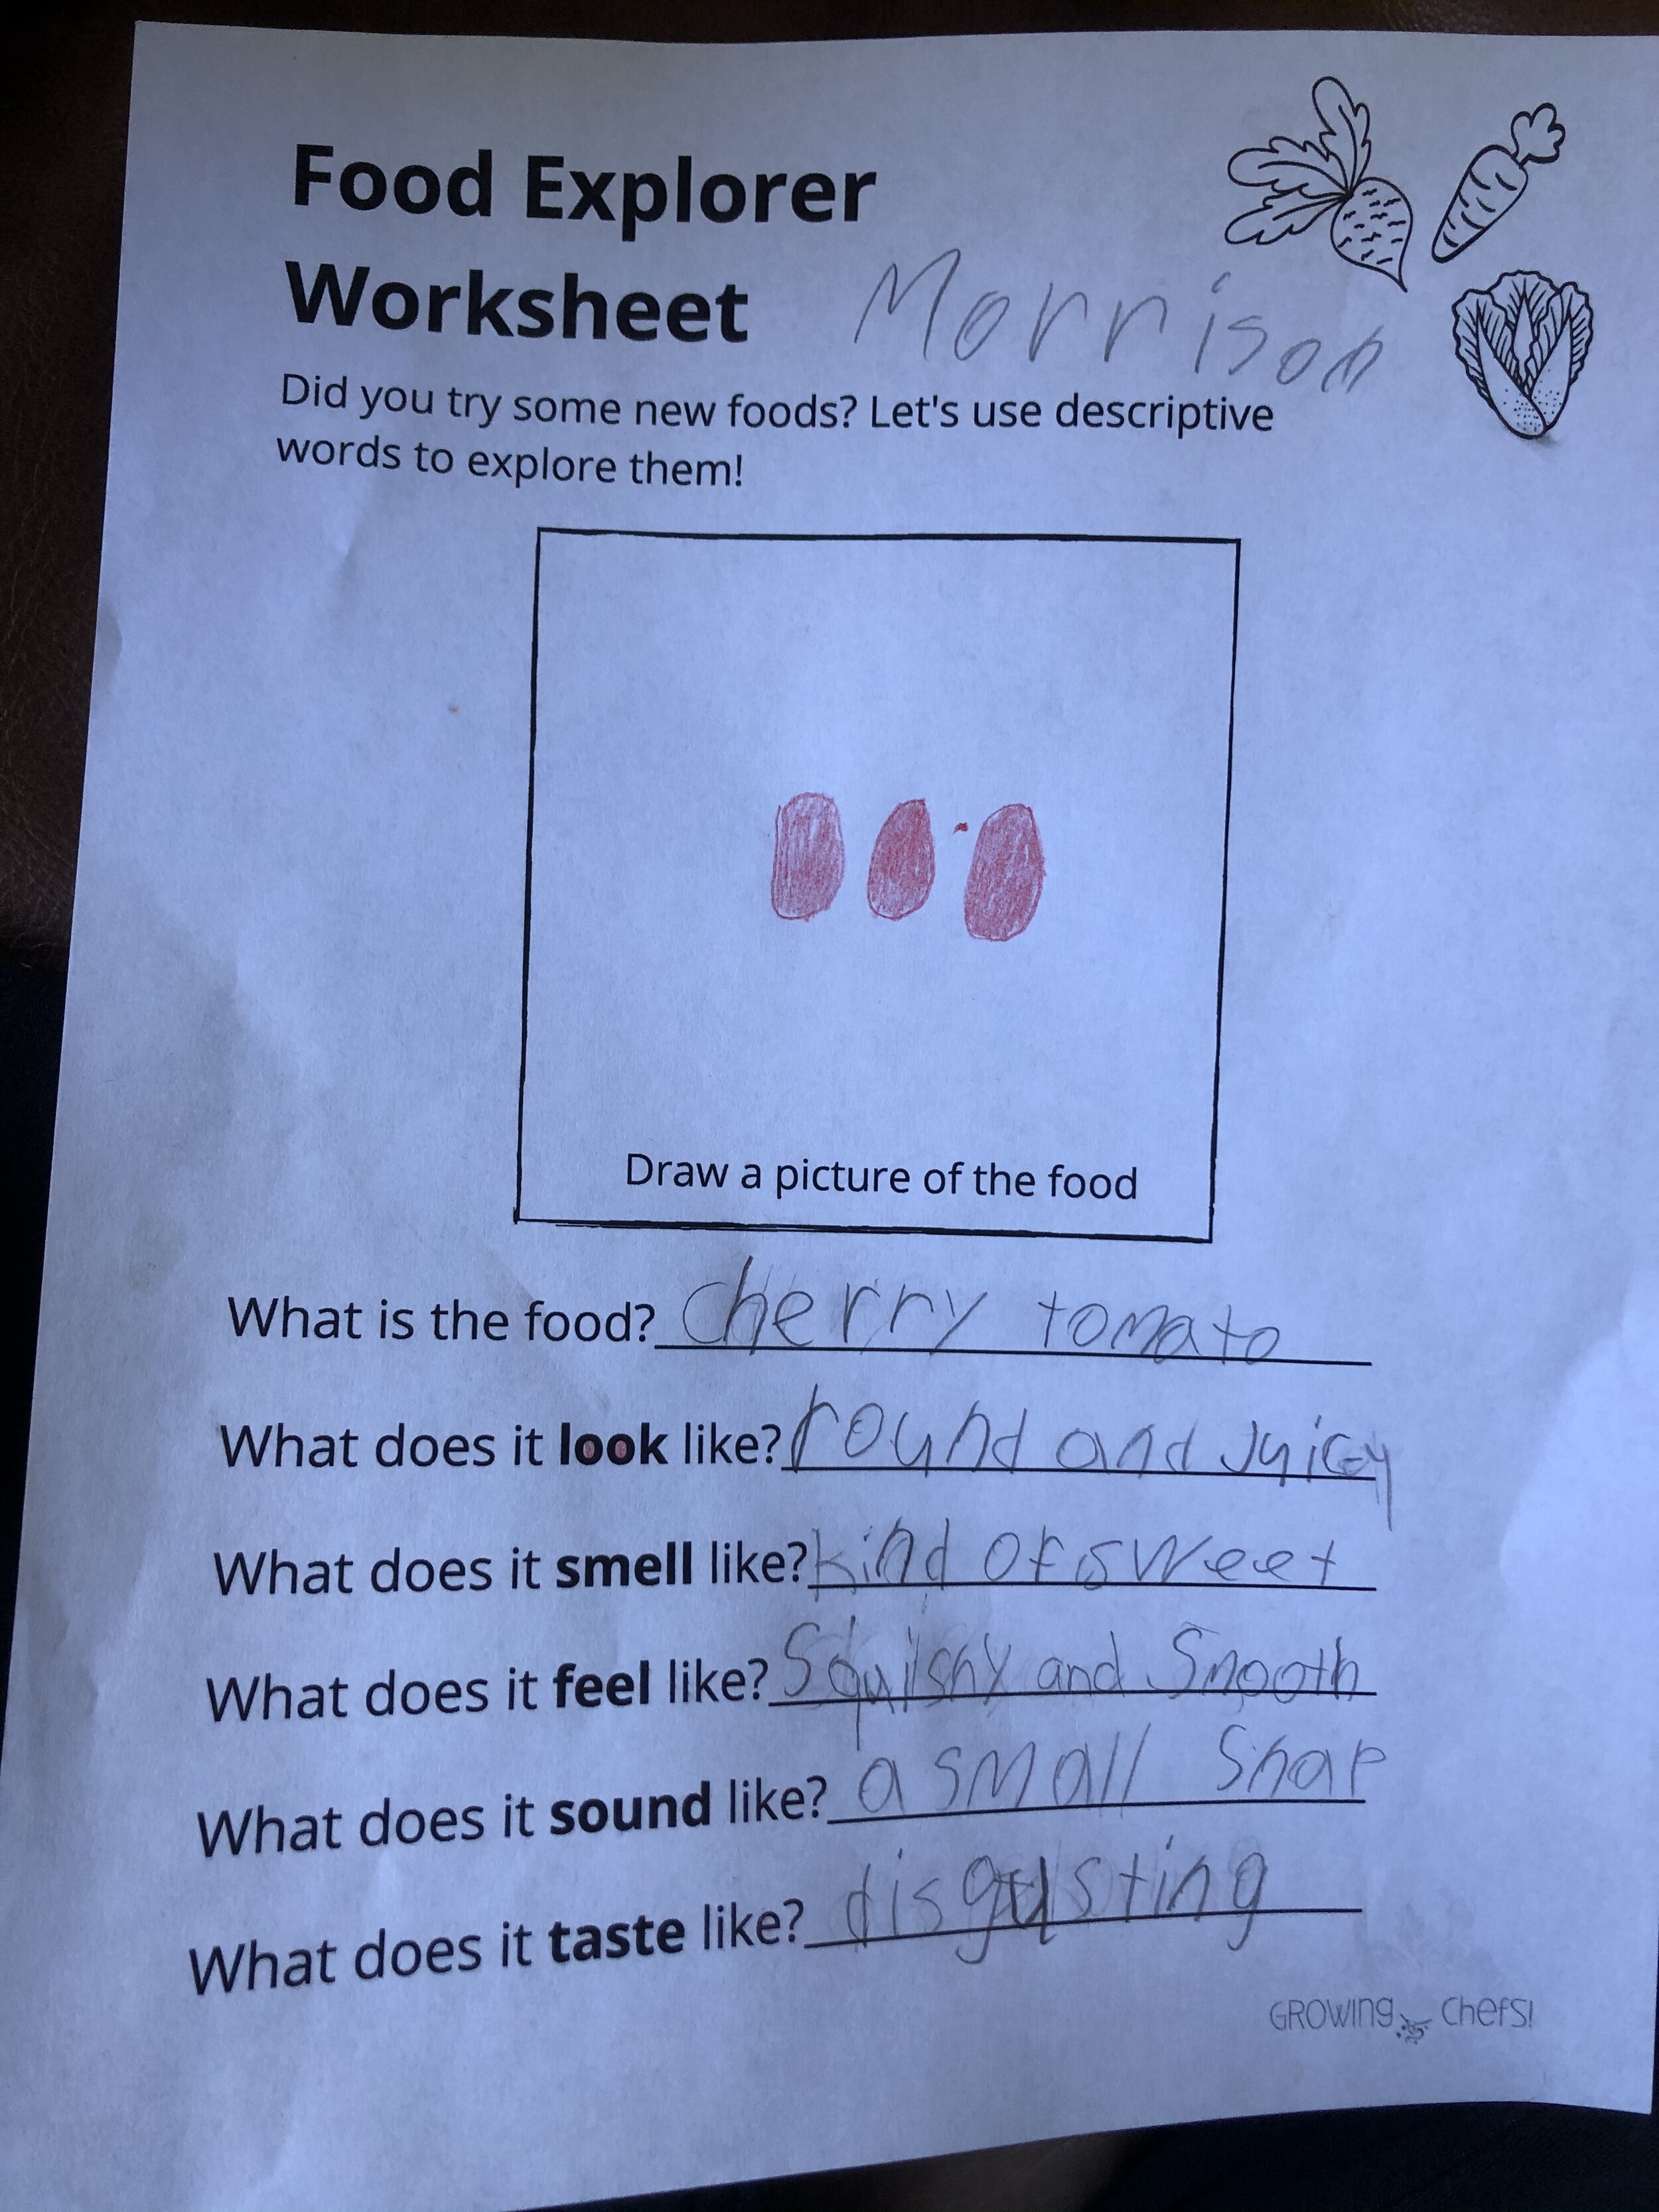 Food Explorer
Worksheet Morrison
Did you try some new foods? Let's use descriptive
words to explore them!
Draw a picture of the food
What is the food? cherry tomato
What does it look like? round and Juicy
What does it smell like? kind of sweet
What does it feel like? Squishy and Smooth
What does it sound like? a small Snap
What does it taste like? disgusting
GROWING chefs!